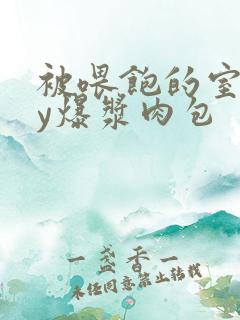 被喂饱的室
y爆浆肉包
一盏香一
未经同意禁止转载